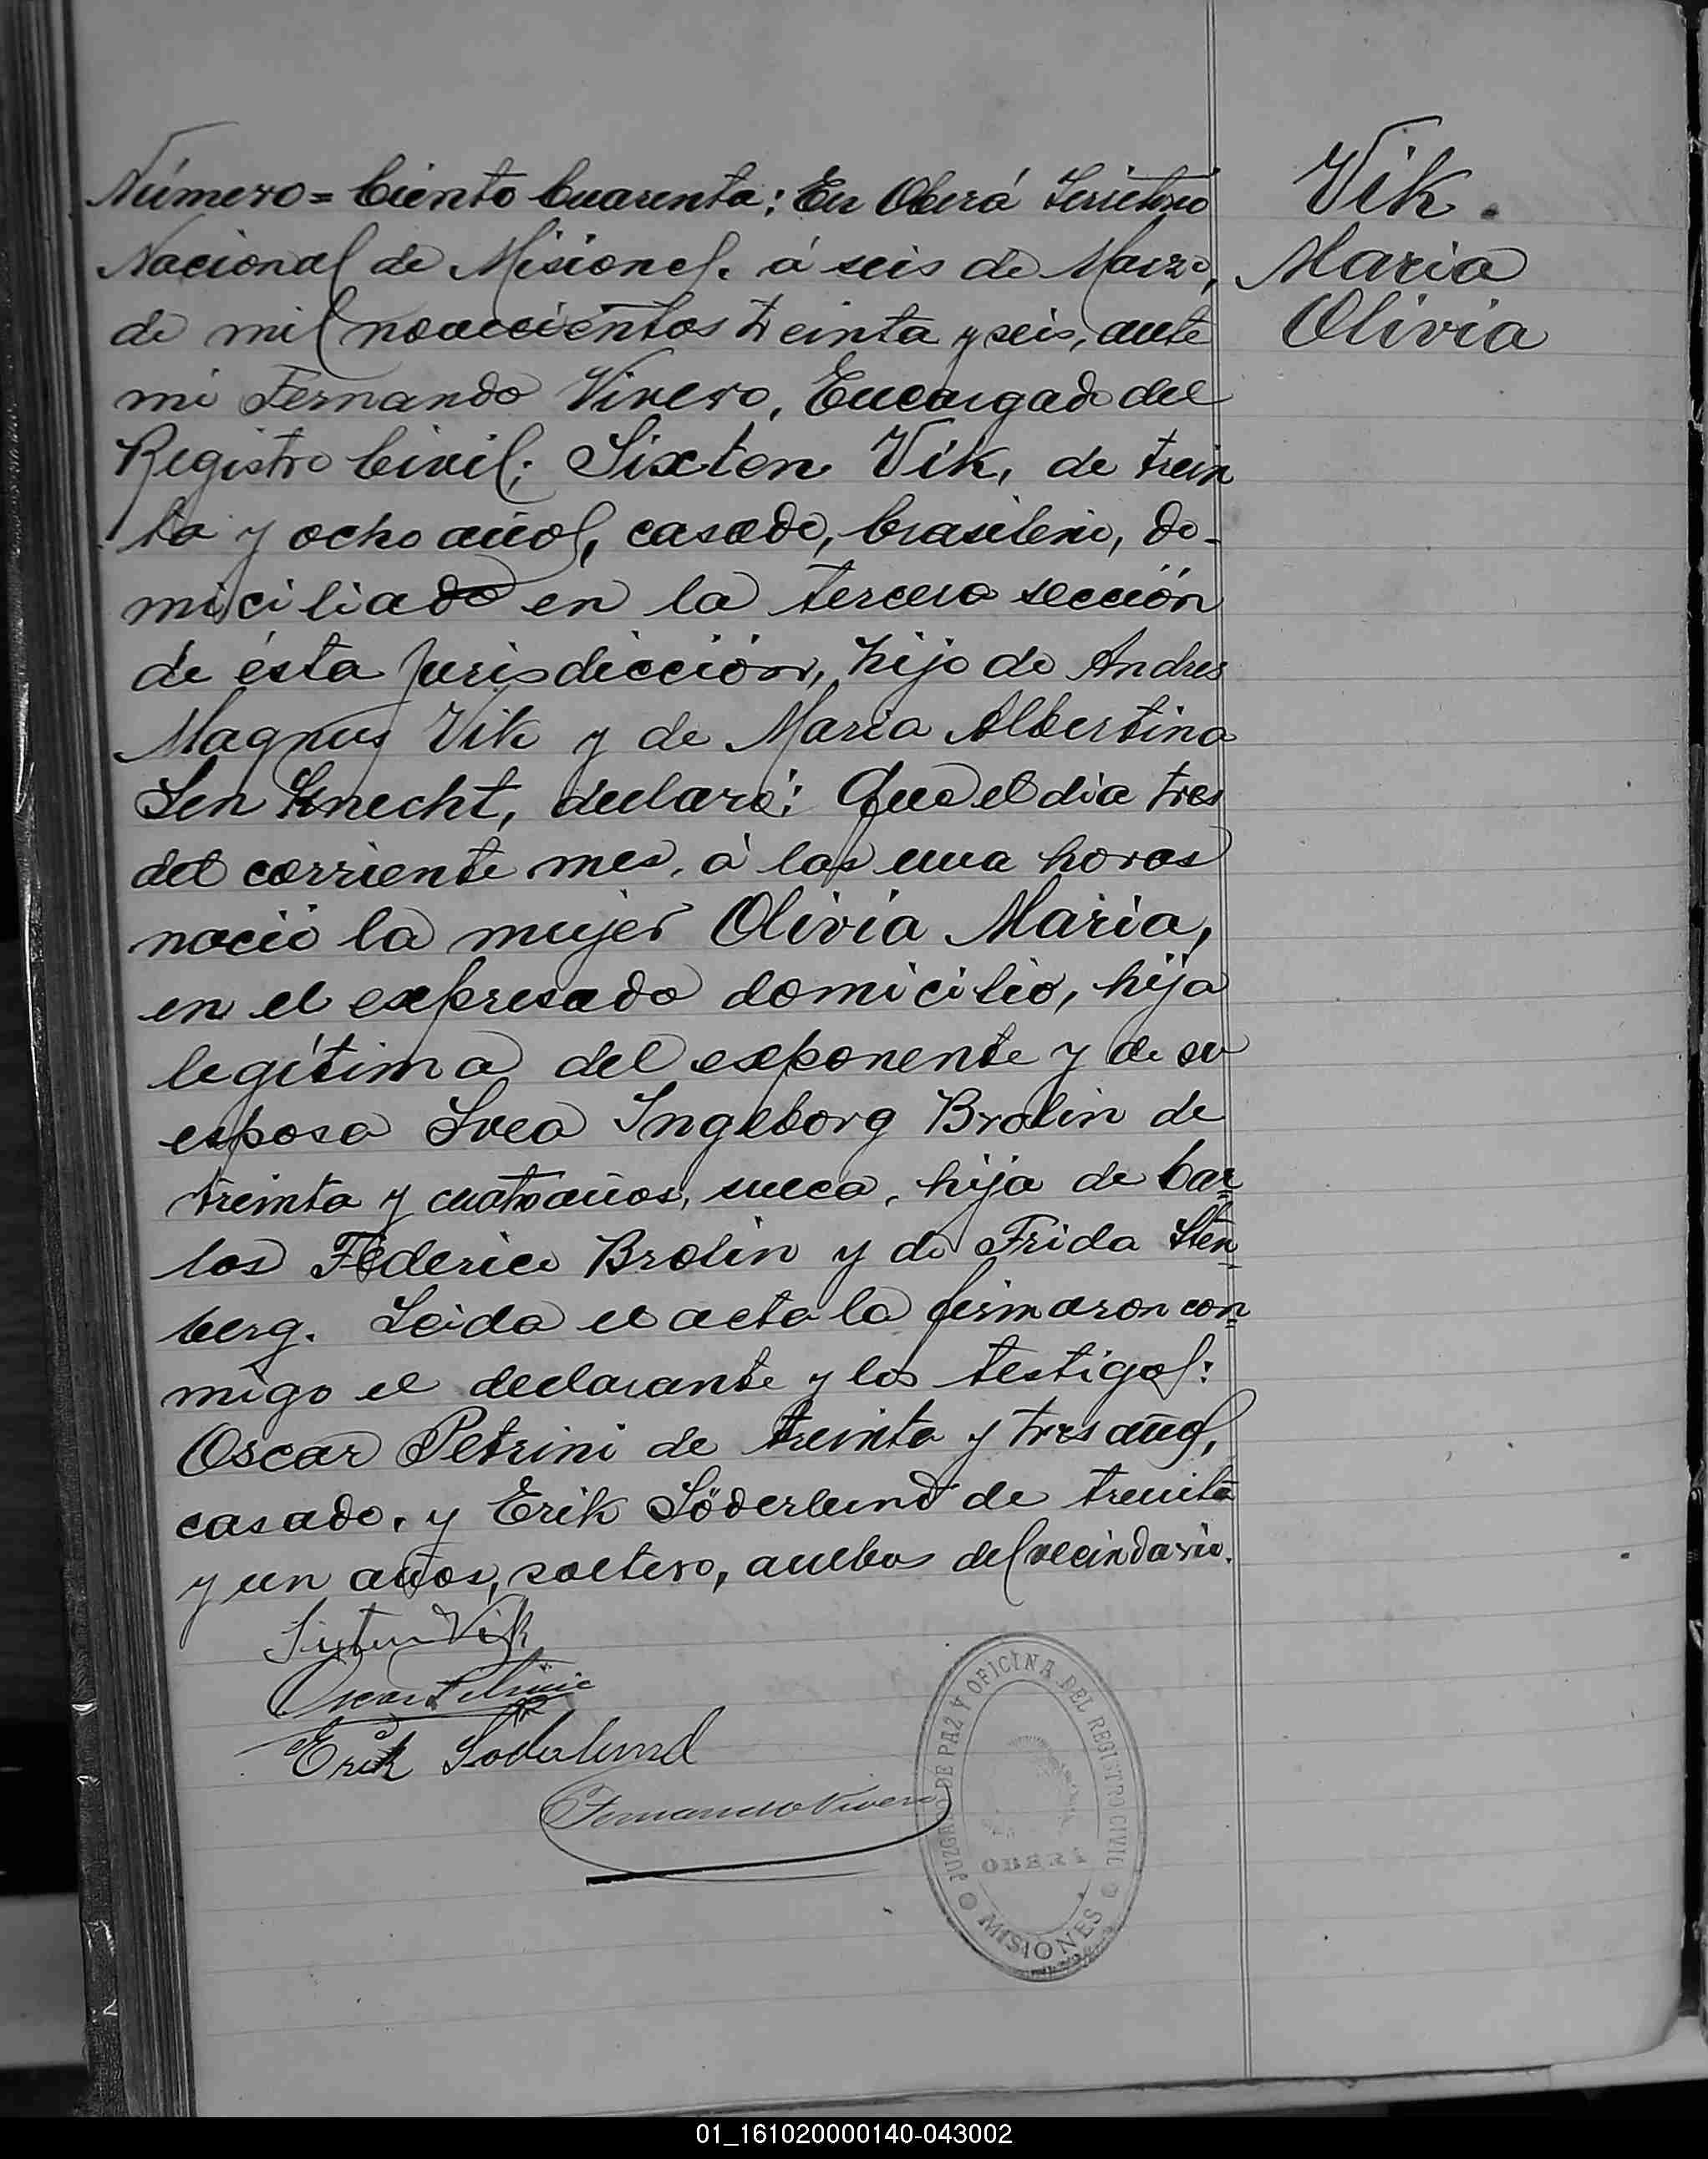 Número = Ciento Cuarenta: En Oberá Territorio
Nacional de Misiones. á seis de Marzo,
de mil novecientos treinta y seis, ante
mi Fernando Vivero, Encargado del
Registro Civil; Sixten Vik, de trein
ta y ocho años, casado, brasileño, do-
miciliado en la tercera sección
de ésta Jurisdicción, hijo de Andres
Magnus Vik y de Maria Albertina
Sen Knecht, declaró: Que el dia tres
del corriente mes, á las una horas
nació la mujer Olivia Maria,
en el expresado domicilio, hija
legítima del exponente y de su
esposa Svea Ingeborg Brolin de
treinta y cuatro años, sueca, hija de Car=
los Federico Brolin y de Frida Sten=
berg. Leida el acta la firmaron con=
migo el declarante y los testigos:
Oscar Petrini de treinta y tres años,
casado. y Erik Söderlund de treinta
y un años, soltero, ambos del vecindario.
Sixten Vik
Oscar Petrini
Erik Söderlund
Fernando Vivero
Vik.
Maria
Olivia
JUZGADO DE PAZ Y OFICINA DEL REGISTRO CIVIL
OBERÁ
MISIONES
01_161020000140-043002